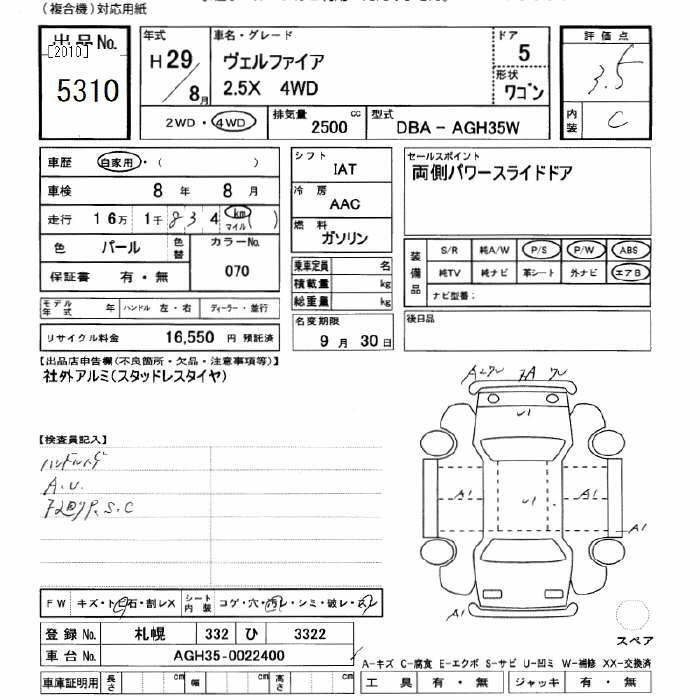 (複合機)対応用紙
出品No.
[2010]
5310
年式
H 29 / 8月
車名・グレード
ヴェルファイア
2.5X 4WD
ドア
5
形状
ワゴン
評価点
3.5
内装
C
2WD・4WD
排気量 2500 cc
型式 DBA - AGH35W
車歴 自家用・( )
車検 8 年 8 月
走行 16万 1千 834 km マイル ( )
色 パール 色替
カラーNo. 070
保証書 有・無
モデル年式 年 ハンドル 左・右 ディーラー・並行
リサイクル料金 16,550 円 預託済
シフト
IAT
冷房
AAC
燃料
ガソリン
乗車定員 名
積載量 kg
総重量 kg
名変期限
9 月 30 日
セールスポイント
両側パワースライドドア
装備品
S/R 純A/W P/S P/W ABS
純TV 純ナビ 革シート 外ナビ エアB
ナビ型番:
後日品
【出品店申告欄(不良箇所・欠品・注意事項等)】
社外アルミ(スタッドレスタイヤ)
【検査員記入】
A.U.
A1
U1
A1
U1
A1
A1
A1
FW キズ・トビ石・割レX シート内装 コゲ・穴・汚レ・シミ・破レ・スレ
登録No. 札幌 332 ひ 3322
車台No. AGH35-0022400
車庫証明用 長さ cm 幅 cm 高さ cm
スペア
A-キズ C-腐食 E-エクボ S-サビ U-凹ミ W-補修 XX-交換済
工具 有・無 ジャッキ 有・無